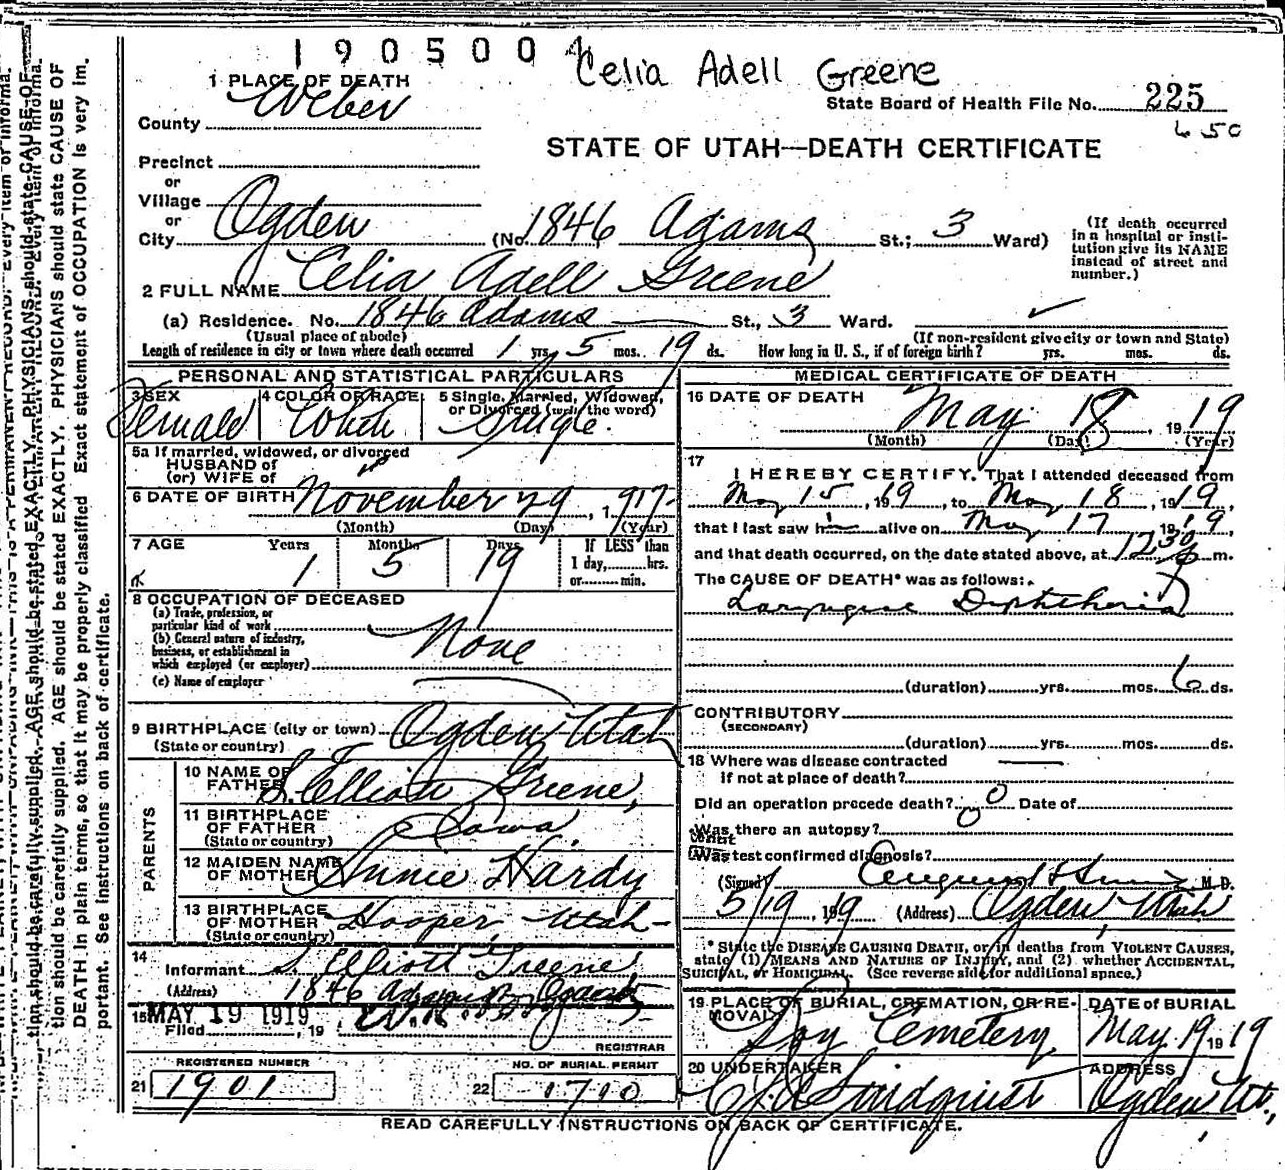 1905004
Celia Adell Greene
1 PLACE OF DEATH
Weber
County
State Board of Health File No. 225
650
STATE OF UTAH—DEATH CERTIFICATE
Precinct
or
Village
or
City Ogden (No. 1846 Adams St.; 3 Ward)
(If death occurred in a hospital or insti-
tution give its NAME
instead of street and
number.)
2 FULL NAME Celia Adell Greene
(a) Residence. No. 1846 Adams St., 3 Ward.
(Usual place of abode) (If non-resident give city or town and State)
Length of residence in city or town where death occurred 1 yrs. 5 mos. 19 ds. How long in U. S., if of foreign birth? yrs. mos. ds.
PERSONAL AND STATISTICAL PARTICULARS
3 SEX 4 COLOR OR RACE 5 Single, Married, Widowed,
or Divorced (write the word)
Femald Single.
5a If married, widowed, or divorced
HUSBAND of
(or) WIFE of
6 DATE OF BIRTH November 29, 1917
(Month) (Day) (Year)
7 AGE Years Months Days If LESS than
1 day, hrs.
or min.
1 5 19
8 OCCUPATION OF DECEASED
(a) Trade, profession, or
particular kind of work
(b) General nature of industry,
business, or establishment in
which employed (or employer)
None
(c) Name of employer
9 BIRTHPLACE (city or town) Ogden Utah
(State or country)
PARENTS
10 NAME OF
FATHER S. Elliott Greene,
11 BIRTHPLACE
OF FATHER Iowa
(State or country)
12 MAIDEN NAME
OF MOTHER Annie Hardy
13 BIRTHPLACE
OF MOTHER Hooper, Utah
(State or country)
14
Informant S. Elliott Greene,
(Address) 1846 Adams Ogden
15 MAY 19 1919
Filed , 19
REGISTRAR
REGISTERED NUMBER
21 1901
NO. OF BURIAL PERMIT
22 1710
MEDICAL CERTIFICATE OF DEATH
16 DATE OF DEATH
May 18, 1919
(Month) (Day) (Year)
17
I HEREBY CERTIFY. That I attended deceased from
May 15, 1919, to May 18, 1919,
that I last saw h alive on May 17 1919,
and that death occurred, on the date stated above, at 1230 p m.
The CAUSE OF DEATH* was as follows:
Diphtheria
(duration) yrs. mos. 6 ds.
CONTRIBUTORY
(SECONDARY)
(duration) yrs. mos. ds.
18 Where was disease contracted
if not at place of death?
Did an operation precede death? 0 Date of
Was there an autopsy? 0
Was test confirmed diagnosis?
(Signed) M.D.
5/19, 1919 (Address) Ogden, Utah
*State the DISEASE CAUSING DEATH, or in deaths from VIOLENT CAUSES,
state (1) MEANS AND NATURE OF INJURY, and (2) whether ACCIDENTAL,
SUICIDAL, or HOMICIDAL. (See reverse side for additional space.)
19 PLACE OF BURIAL, CREMATION, OR RE-
MOVAL Cemetery
DATE of BURIAL
May 19 1919
20 UNDERTAKER
Lindquist
ADDRESS
Ogden, Ut,
READ CAREFULLY INSTRUCTIONS ON BACK OF CERTIFICATE.
tion should be carefully supplied. AGE should be stated EXACTLY. PHYSICIANS should state CAUSE OF
DEATH in plain terms, so that it may be properly classified. Exact statement of OCCUPATION is very im-
portant. See instructions on back of certificate.